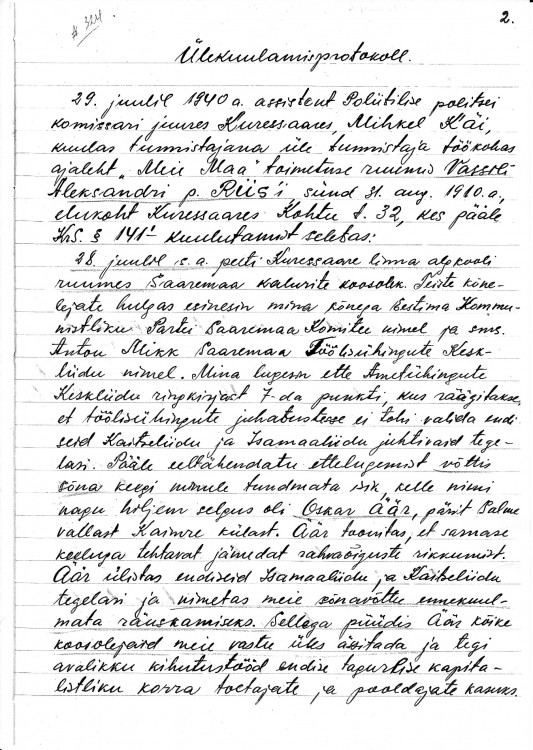 # 324
2.
Ülekuulamisprotokoll.
29. juulil 1940 a. assistent Poliitilise politsei
komissari juures Kuressaares, Mihkel Käi,
kuulas tunnistajana üle tunnistaja töökohas
ajaleht „Meie Maa" toimetuse ruumis Vassili
Aleksandri p. Riis'i sünd 31. aug. 1910.a.,
elukoht Kuressaares Kohtu t. 32, kes pääle
KrS. § 141¹ kuulutamist seletas:
28. juulil s.a. peeti Kuressaare linna algkooli
ruumes Saaremaa kalurite koosolek. Teiste kõne-
lejate hulgas esinesin mina kõnega Eestima Kommu-
nistliku Partei Saaremaa Komitee nimel ja sms.
Anton Mikk Saaremaa Töölisühingute Kesk-
liidu nimel. Mina lugesin ette Ametiühingute
Keskliidu ringkirjast 7-da punkti, kus räägitakse,
et töölisühingute juhatustesse ei tohi valida endi
seid Kaitseliidu ja Isamaaliidu juhtivaid tege-
lasi. Pääle eeltähendatu ettelugemist võttis
sõna keegi minule tundmata isik, kelle nimi
nagu hiljem selgus oli Oskar Äär, pärit Salme
vallast Kaimre külast. Äär toonitas, et sarnase
keeluga tehtavat jämedat rahvaõiguste rikkumist.
Äär ülistas endiseid Isamaaliidu ja Kaitseliidu
tegelasi ja nimetas meie sõnavõttu ennekuul-
mata räuskamiseks. Sellega püüdis Äär kõike
koosolejaid meie vastu üles ässitada ja tegi
avalikku kihutustööd endise tagurlise kapita-
listliku korra toetajate ja pooldajate kasuks.